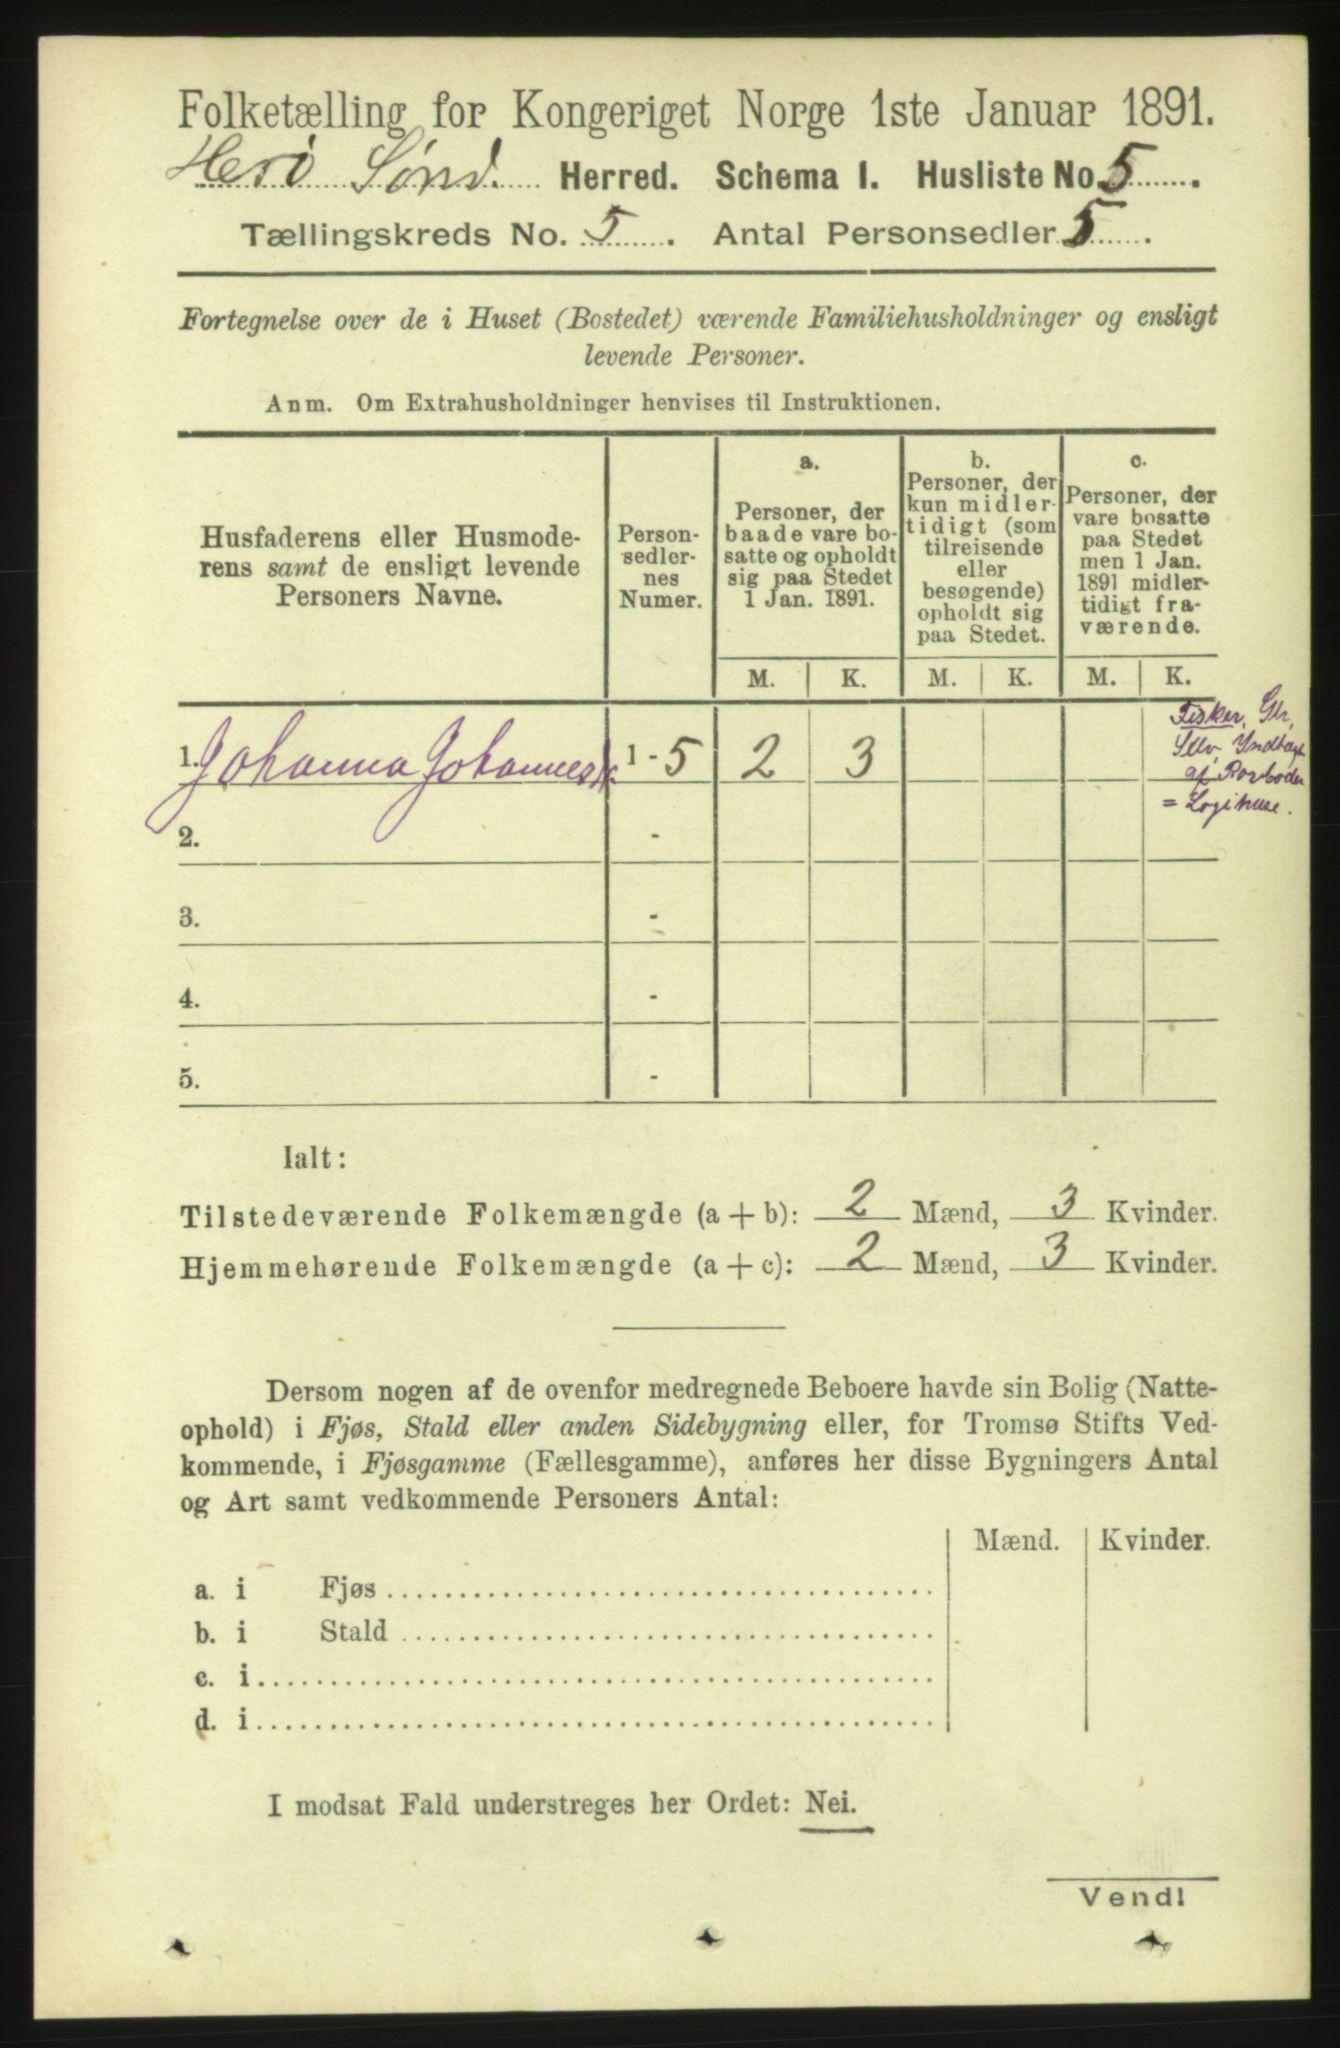 Folketælling for Kongeriget Norge 1ste Januar 1891.
Herö Sönd. Herred. Schema I. Husliste No. 5.
Tællingskreds No. 5. Antal Personsedler 5.
Fortegnelse over de i Huset (Bostedet) værende Familiehusholdninger og ensligt
levende Personer.
Anm. Om Extrahusholdninger henvises til Instruktionen.
Husfaderens eller Husmode-
rens samt de ensligt levende
Personers Navne.
Person-
sedler-
nes
Numer.
a.
Personer, der
baade vare bo-
satte og opholdt
sig paa Stedet
1 Jan. 1891.
b.
Personer, der
kun midler-
tidigt (som
tilreisende
eller
besøgende)
opholdt sig
paa Stedet.
c.
Personer, der
vare bosatte
paa Stedet
men 1 Jan.
1891 midler-
tidigt fra-
værende.
M. K. M. K. M. K.
1. Johanna 1 - 5 2 3
Fisker,
af
= Logihuse.
2. -
3. -
4. -
5. -
Ialt:
Tilstedeværende Folkemængde (a + b): 2 Mænd, 3 Kvinder.
Hjemmehørende Folkemængde (a + c): 2 Mænd, 3 Kvinder.
Dersom nogen af de ovenfor medregnede Beboere havde sin Bolig (Natte-
ophold) i Fjøs, Stald eller anden Sidebygning eller, for Tromsø Stifts Ved-
kommende, i Fjøsgamme (Fællesgamme), anføres her disse Bygningers Antal
og Art samt vedkommende Personers Antal:
Mænd. Kvinder.
a. i Fjøs
b. i Stald
c. i
d. i
I modsat Fald understreges her Ordet: Nei.
Vend!